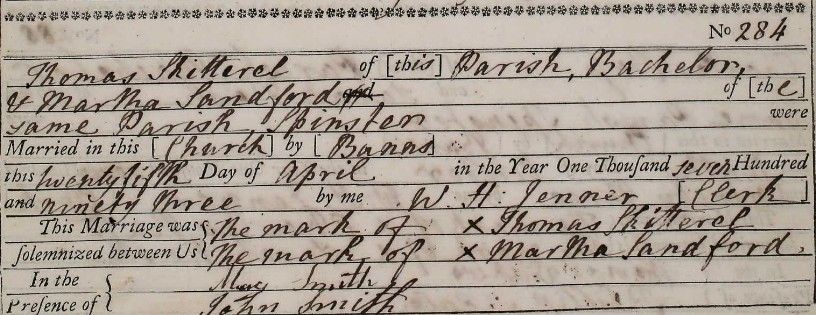 No 284
Thomas Skitterel of [this] Parish, Bachelor,
& Martha Sandford and of [the]
same Parish, Spinster were
Married in this [Church] by [Banns]
this twenty fifth Day of April in the Year One Thouſand seven Hundred
and ninety three by me W. H. Jenner [Clerk]
This Marriage was { the mark of × Thomas Skitterel
ſolemnized between Us { the mark of × Martha Sandford.
In the { May Smith
Preſence of { John Smith